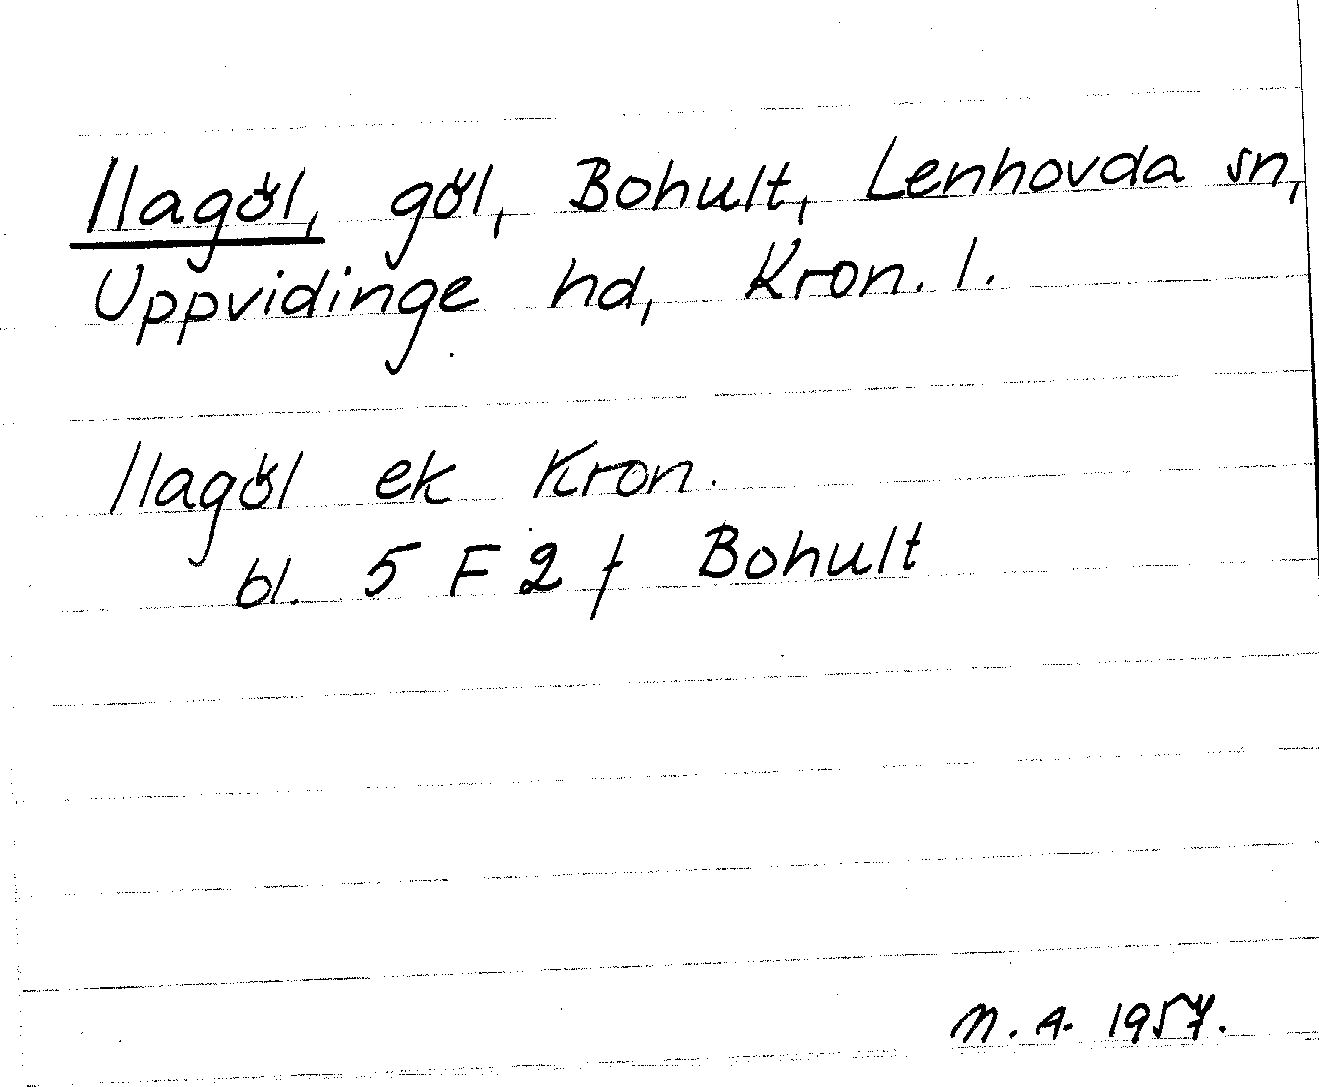 Ilagöl, göl, Bohult, Lenhovda sn,
Uppvidinge hd, Kron. l.
Ilagöl ek Kron.
bl. 5 F 2 f Bohult
N. A. 1957.